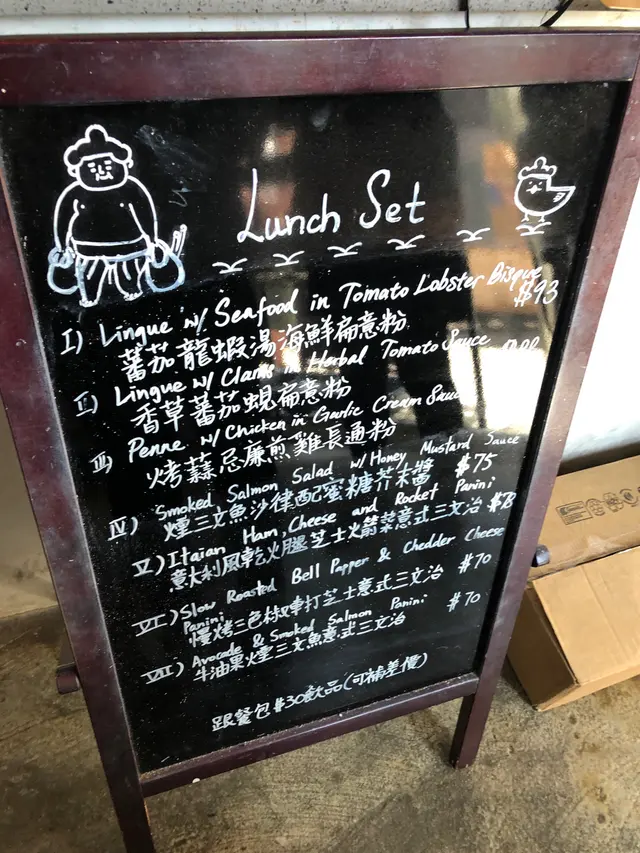 Lunch Set
I) Lingue w/ Seafood in Tomato Lobster Bisque
$93
蕃茄龍蝦湯海鮮扁意粉
II) Lingue w/ Clams in Herbal Tomato Sauce
香草蕃茄蜆扁意粉
III) Penne w/ Chicken in Garlic Cream Sauce
烤蒜忌廉煎雞長通粉
IV) Smoked Salmon Salad w/ Honey Mustard Sauce
煙三文魚沙律配蜜糖芥末醬 $75
V) Itaian Ham, Cheese and Rocket Panini
意大利風乾火腿芝士火箭菜意式三文治
VI) Slow Roasted Bell Papper & Chedder Cheese
Panini $70
慢烤三色椒車打芝士意式三文治
VII) Avocade & Smoked Salmon Panini $70
牛油果煙三文魚意式三文治
跟餐包$30飲品(可補差價)